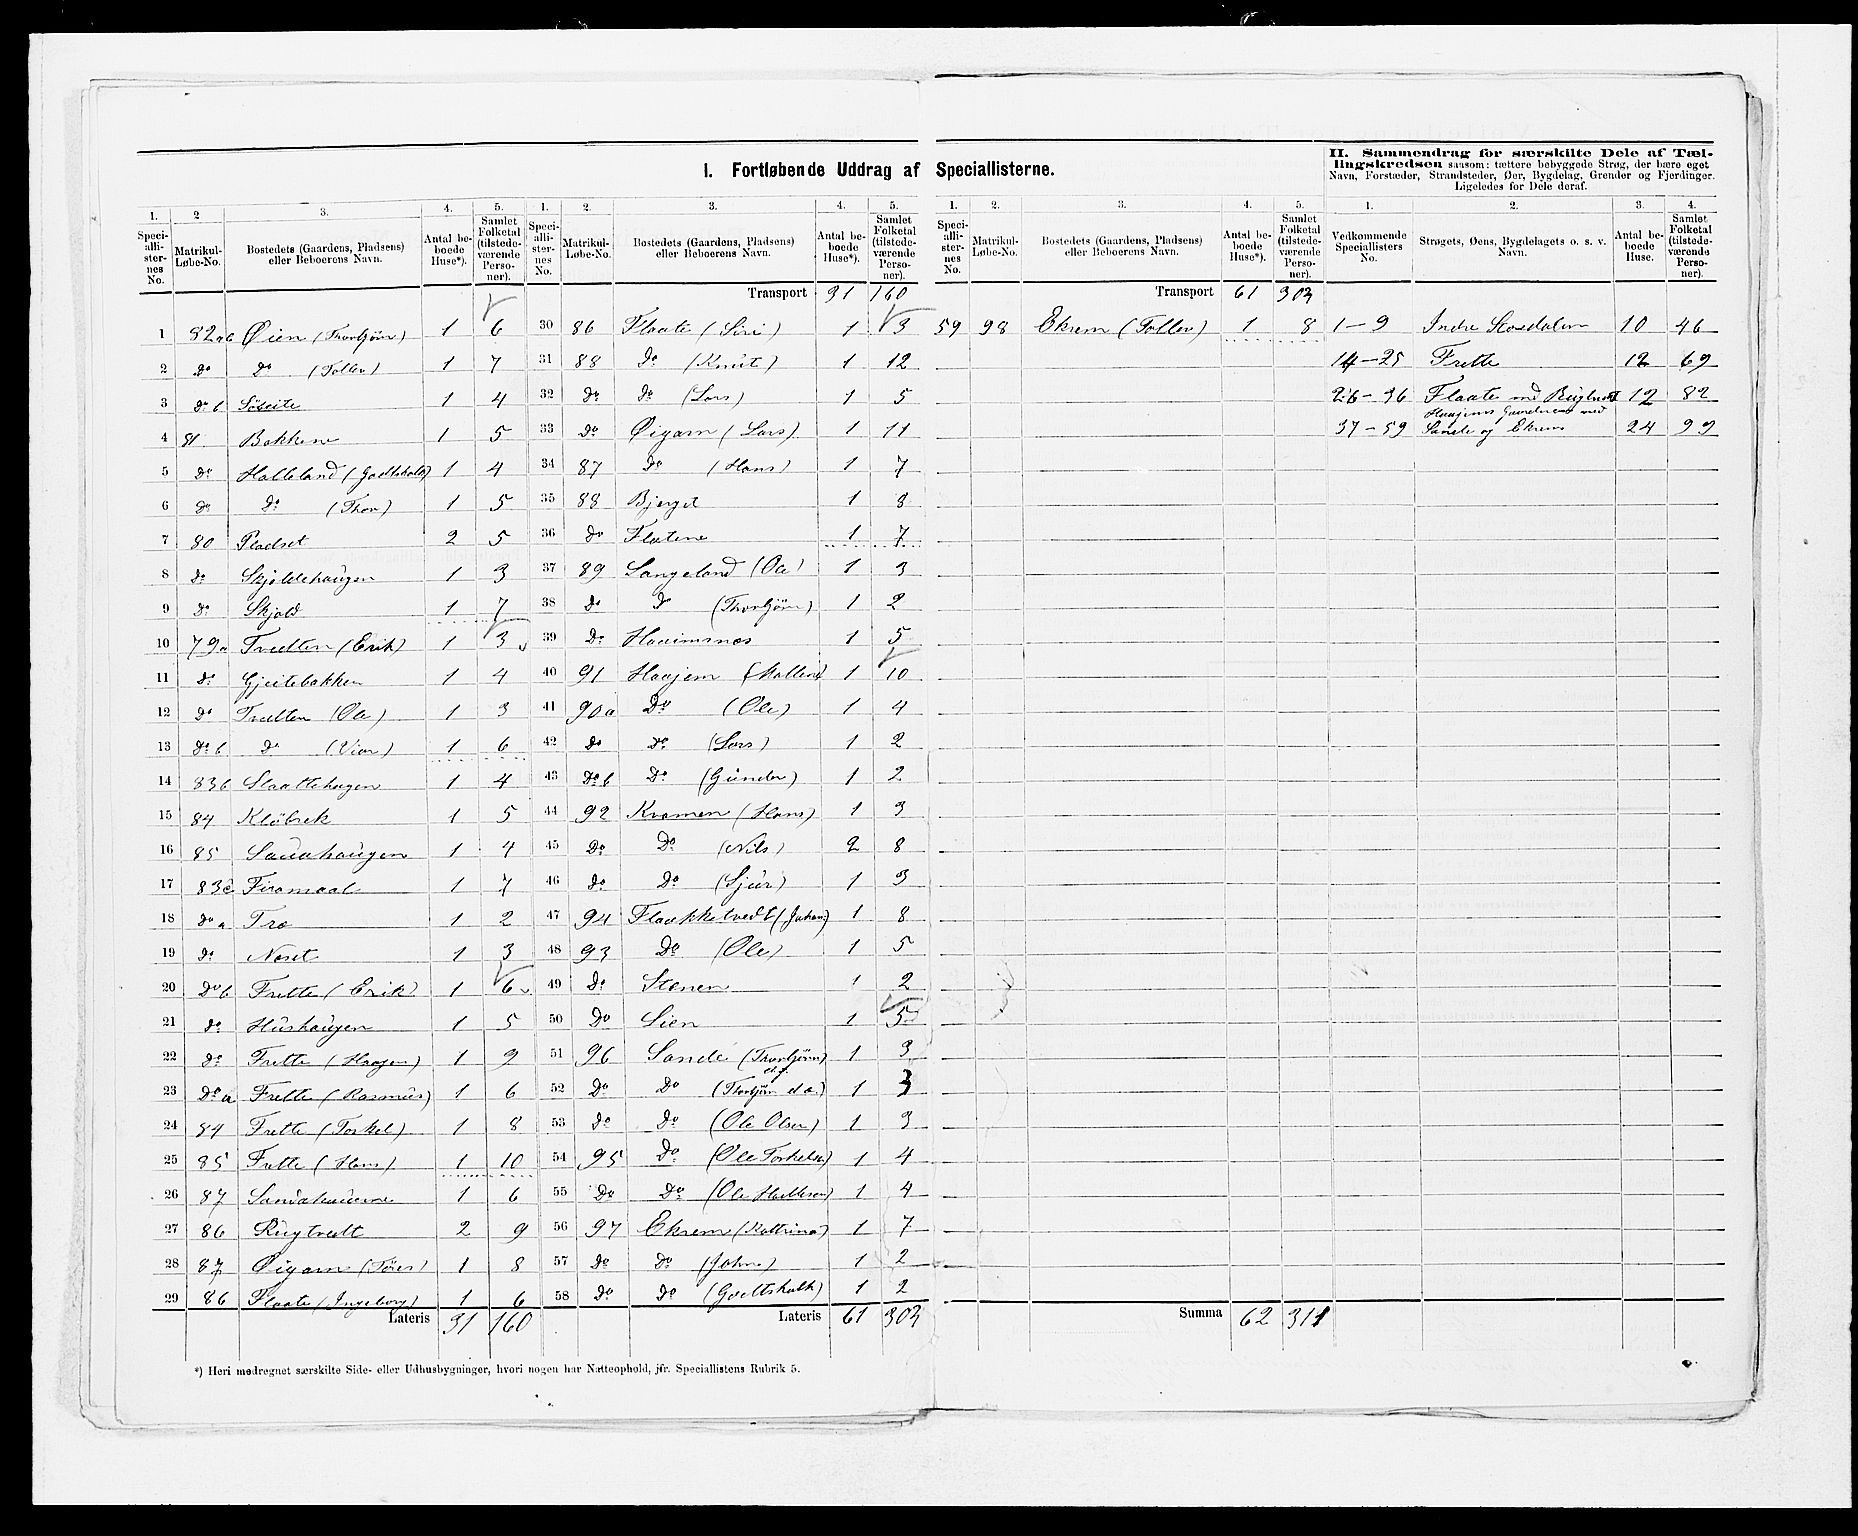 I. Fortløbende Uddrag af Speciallisterne.
II. Sammendrag for særskilte Dele af Tællingskredsen saasom: tættere bebyggede Strøg, der bære eget
Navn, Forstæder, Strandsteder, Øer, Bygdelag, Grender og Fjerdinger.
Ligeledes for Dele deraf.
1. 2 3. 4. 5.
Speciallisternes No. Matrikul-Løbe-No. Bostedets (Gaardens, Pladsen) eller Beboerens Navn. Antal beboede Huse*). Samlet Folketal (tilstedeværende Personer).
1 82ab Øien (Thorbjörn) 1 6
2 do do (Tollev) 1 7
3 do b Söteite 1 4
4 81 Bakkene 1 5
5 do Halleland (Godtskalk) 1 4
6 do do (Thor) 1 5
7 80 Pladset 2 5
8 do Skjoldehaugen 1 3
9 do Skjold 1 7
10 79a Tveitten (Erik) 1 3
11 do Gjeitebakken 1 4
12 do Tveitten (Ole) 1 3
13 do b do (Viar) 1 6
14 83b Slaattehagen 1 4
15 84 Klöbrek 1 5
16 85 Sauahaugen 1 4
17 83c Firamaal 1 7
18 do a Træ 1 2
19 do Neset 1 3
20 do b Frette (Erik) 1 6
21 do Hushaugen 1 5
22 do Frette (Haagen) 1 9
23 do a Frette (Rasmus) 1 6
24 84 Frette (Torkel) 1 8
25 85 Frette (Hans) 1 10
26 87 1 6
27 86 Rugtvedt 2 9
28 87 Øigarn (Tores) 1 8
29 86 Flaate (Ingeborg) 1 6
Lateris 31 160
1. 2. 3. 4. 5.
Speciallisternes No. Matrikul-Løbe-No. Bostedets (Gaardens, Pladsen) eller Beboerens Navn. Antal beboede Huse*). Samlet Folketal (tilstedeværende Personer).
Transport 31 160
30 86 Flaate (Siri) 1 3
31 88 do (Knut) 1 12
32 do do (Lars) 1 5
33 do Øigarn (Lars) 1 11
34 87 do (Hans) 1 7
35 88 Bjerget 1 8
36 do Flatene 1 7
37 89 Langeland (Ole) 1 3
38 do do (Thorbjörn) 1 2
39 do Haaimsnes 1 5
40 91 Haajem 1 10
41 90a do (Ole) 1 4
42 do do (Lars) 1 2
43 do b do (Gunder) 1 2
44 92 Kvamen (Hans) 1 3
45 do do (Nils) 2 8
46 do do (Sjur) 1 3
47 94 Flaakketvedt (Johan) 1 8
48 93 do (Ole) 1 5
49 do Stenen 1 2
50 do Lien 1 5
51 96 Sande (Thorbjörn) 1 3
52 do do (Thorbjörn d. æ.) 1 3
53 do do (Ole Olsen) 1 3
54 95 do (Ole Torkelsen) 1 4
55 do do (Ole) 1 4
56 97 Ekrem (Kattrina) 1 7
57 do do (John) 1 2
58 do do (Godtskalk) 1 2
Lateris 61 303
1. 2. 3. 4. 5.
Speciallisternes No. Matrikul-Løbe-No. Bostedets (Gaardens, Pladsen) eller Beboerens Navn. Antal beboede Huse*). Samlet Folketal (tilstedeværende Personer).
Transport 61 303
59 98 Ekrem (Tollev) 1 8
Summa 62 311
1. 2. 3. 4.
Vedkommende Speciallisters No. Strøgets, Øens, Bygdelagets o. s. v. Navn. Antal beboede Huse. Samlet Folketal (tilstedeværende Personer).
1-9 Indre 10 46
14-25 Frette 12 69
26-36 Flaate med Rugtvedt 12 82
37-59 Haajems Gaardene med
Sande og Ekrem 24 99
*) Heri medregnet særskilte Side- eller Udhusbygninger, hvori nogen har Natteophold, jfr. Speciallistens Rubrik 5.